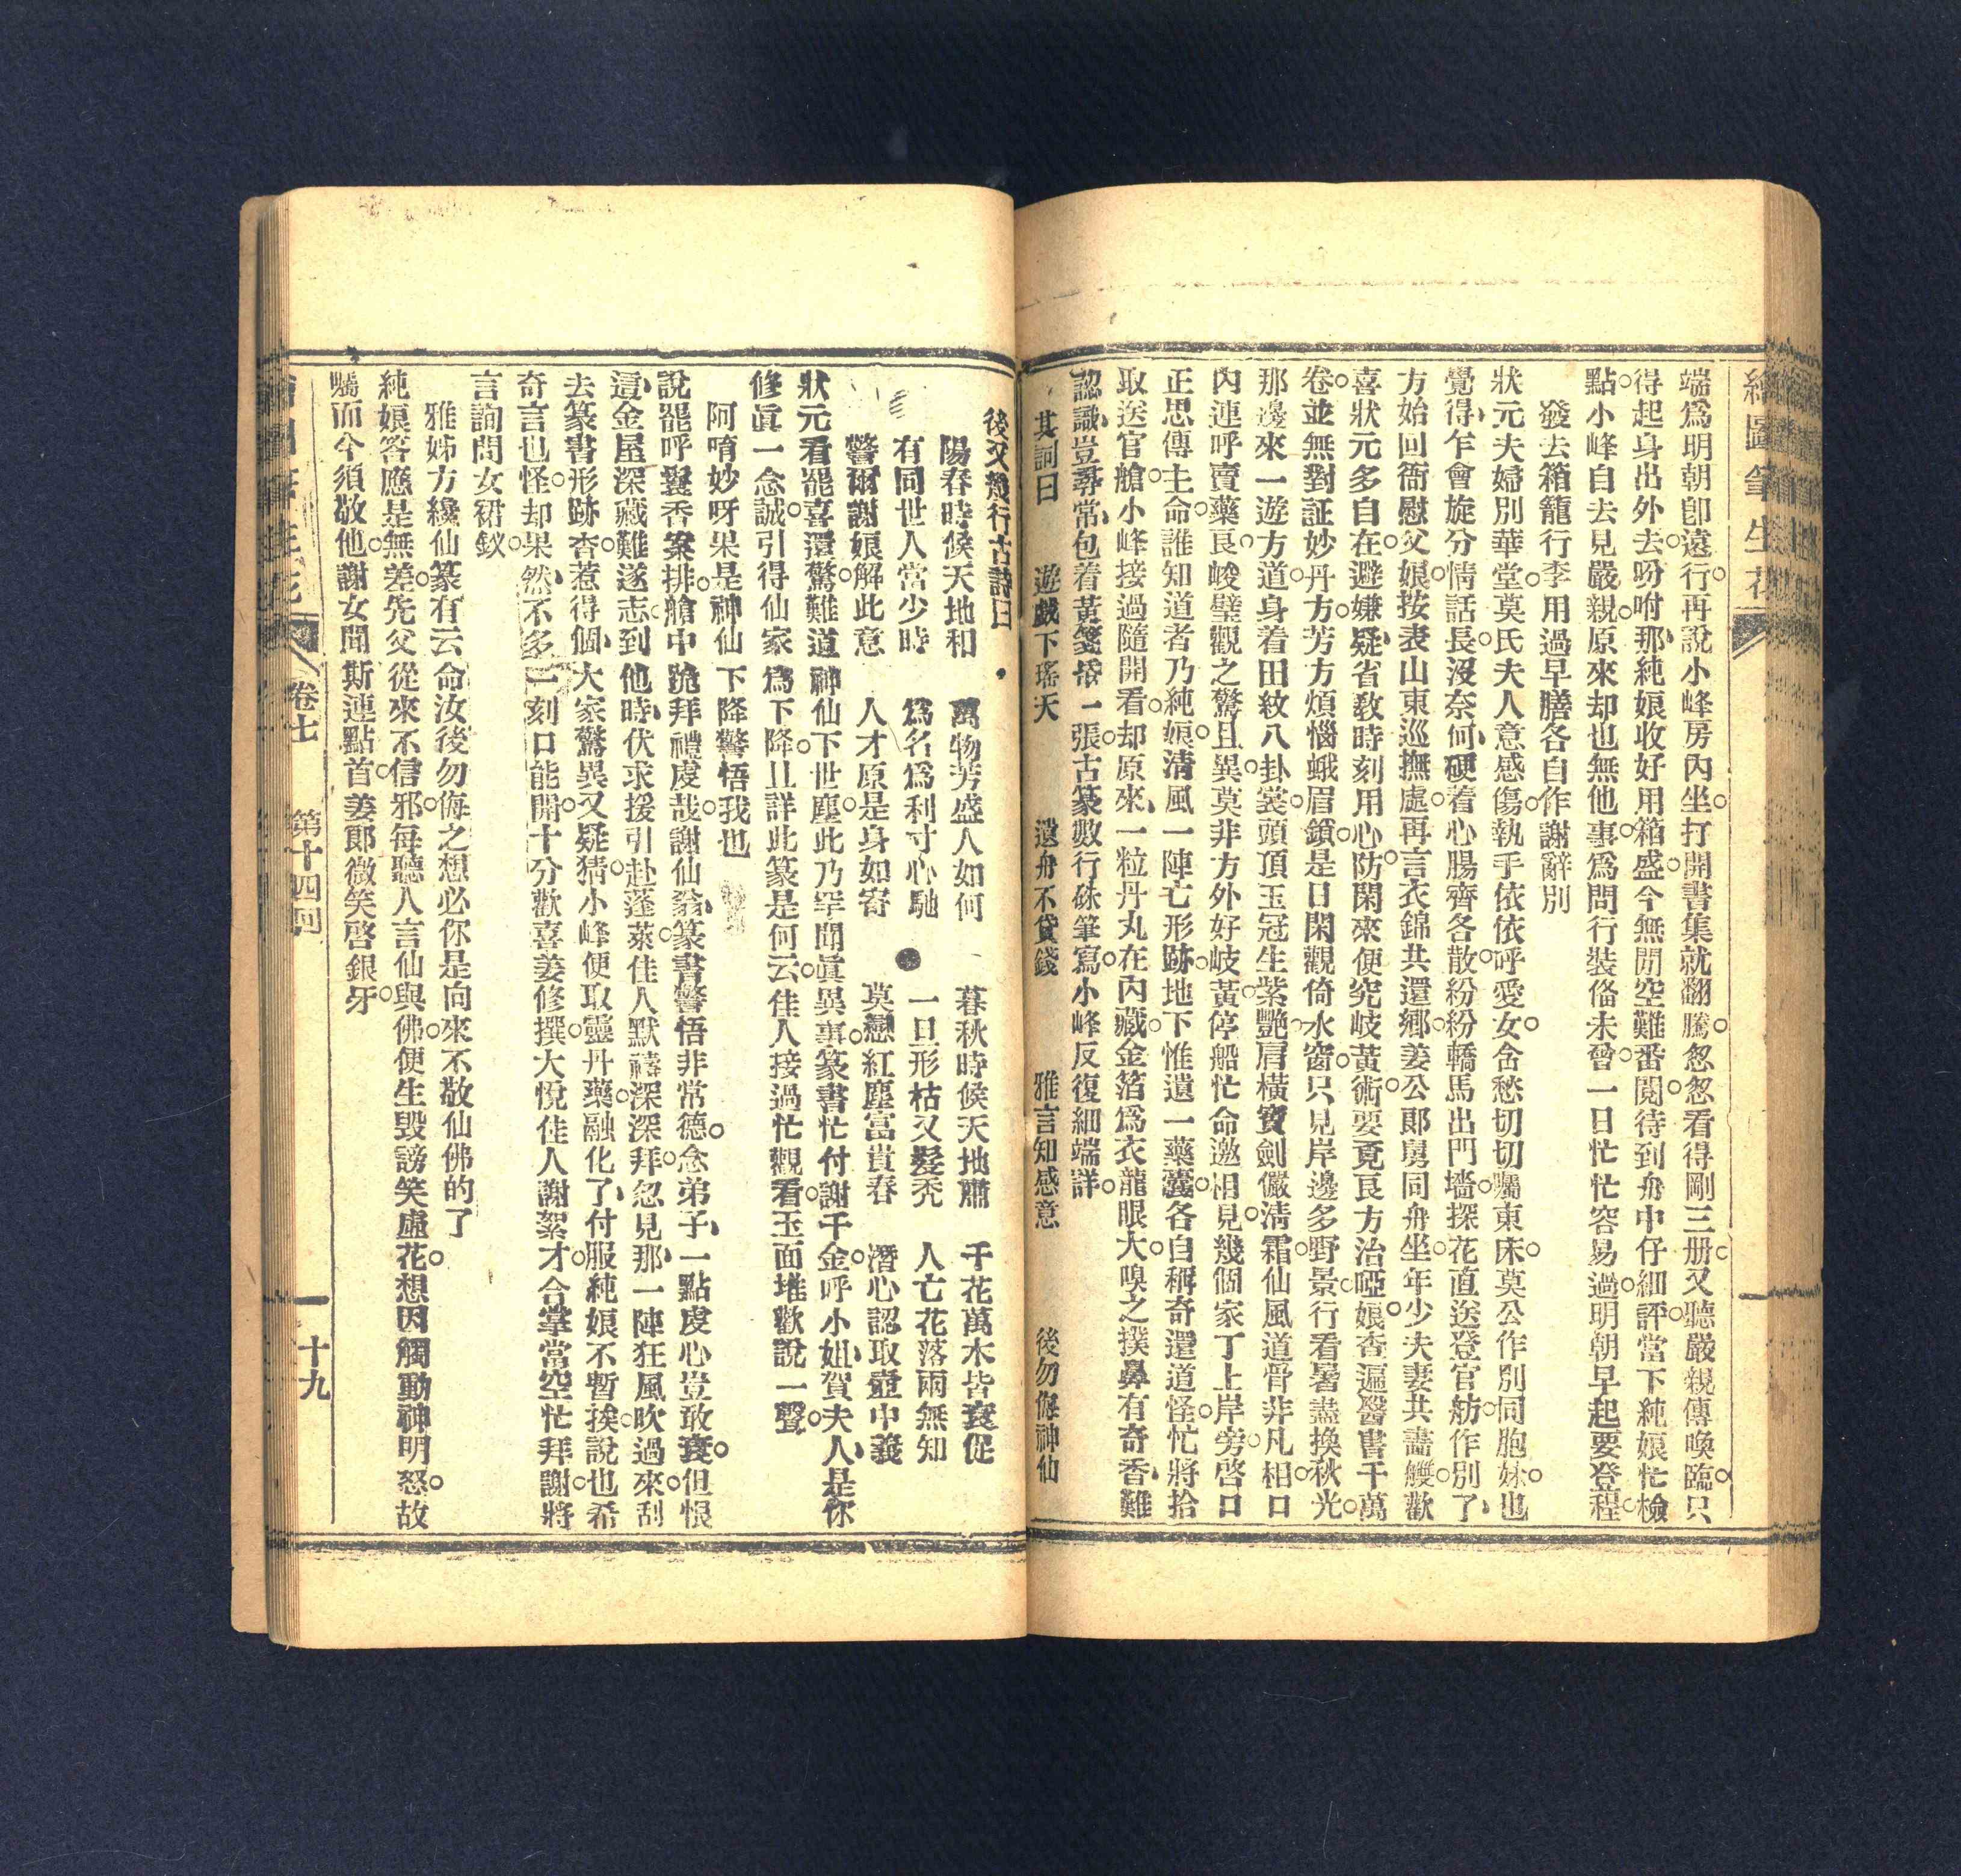 繪圖筆生花
端爲明朝卽遠行○再說小峰房內坐○打開書集就翻騰○忽忽看得剛三册○又聽嚴親傳喚臨○只
得起身出外去○吩咐那純娘收好用箱盛○今無閒空難番閱○待到舟中仔細評○當下純娘忙檢
點○小峰自去見嚴親○原來却也無他事○爲問行裝俻未曾○一日忙忙容易過○明朝早起要登程○
發去箱籠行李用過早膳各自作謝辭別
狀元夫婦別華堂○莫氏夫人意感傷○執手依依呼愛女○含愁切切囑東床○莫公作別同胞妹○也
覺得乍會旋分情話長○沒奈何硬着心腸齊各散○紛紛轎馬出門墻○探花直送登官舫○作別了
方始回衙慰父娘○按表山東巡撫處○再言衣錦共還鄉○姜公郞舅同舟坐○年少夫妻共畵艭○歡
喜狀元多自在○避嫌疑省敎時刻用心防○閑來便究岐黃術○要覔良方治啞娘○查遍醫書千萬
卷○並無對証妙丹方○芳方煩惱蛾眉鎖○是日閑觀倚水窗○只見岸邊多野景○行看暑盡換秋光○
那邊來一遊方道○身着田紋八卦裳○頭頂玉冠生紫艷○肩橫寶劍儼淸霜○仙風道骨非凡相○口
內連呼賣藥良○峻璧觀之驚且異○莫非方外好岐黃○停船忙命邀相見○幾個家丁上岸旁○啓口
正思傳主命○誰知道者乃純娘○淸風一陣亡形跡○地下惟遺一藥囊○各自稱奇還道怪○忙將拾
取送官艙○小峰接過隨開看○却原來一粒丹丸在內藏○金箔爲衣龍眼大○嗅之撲鼻有奇香○難
認識豈尋常○包着黃箋搭一張○古篆數行硃筆寫○小峰反復細端詳○
其詞曰　遊戲下瑤天　遺舟不貸錢　雅言知感意　後勿侮神仙
後又幾行古詩曰
陽春時候天地和　萬物芳盛人如何　暮秋時候天地肅　千花萬木皆衰促
有同世人當少時　爲名爲利寸心馳　一旦形枯又髮禿　人亡花落兩無知
警爾謝娘解此意　人才原是身如寄　莫戀紅塵富貴春　潛心認取壺中義
狀元看罷喜還驚○難道神仙下世塵○此乃罕聞眞異事○篆書忙付謝千金○呼小姐賀夫人○是你
修眞一念誠○引得仙家爲下降○且詳此篆是何云○佳人接過忙觀看○玉面堆歡說一聲○
阿唷妙呀果是神仙下降警悟我也
說罷呼鬟香案排○艙中跪拜禮虔哉○謝仙翁篆書警悟非常德○念弟子一點虔心豈敢衰○但恨
遺金屋深藏難遂志○到他時伏求援引赴蓬萊○佳人默禱深深拜○忽見那一陣狂風吹過來○刮
去篆書形跡杳○惹得個大家驚異又疑猜○小峰便取靈丹藥○融化了付服純娘不暫挨○說也希
奇言也怪○却果然不多一刻口能開○十分歡喜姜修撰○大悅佳人謝絮才○合掌當空忙拜謝○將
言詢問女裙釵○
雅姊方纔仙篆有云命汝後勿侮之想必你是向來不敬仙佛的了
純娘答應是無差○先父從來不信邪○每聽人言仙與佛○便生毀謗笑虛花○想因觸動神明怒○故
囑而今須敬他○謝女聞斯連點首○姜郞微笑啓銀牙○
卷七　第十四回　十九